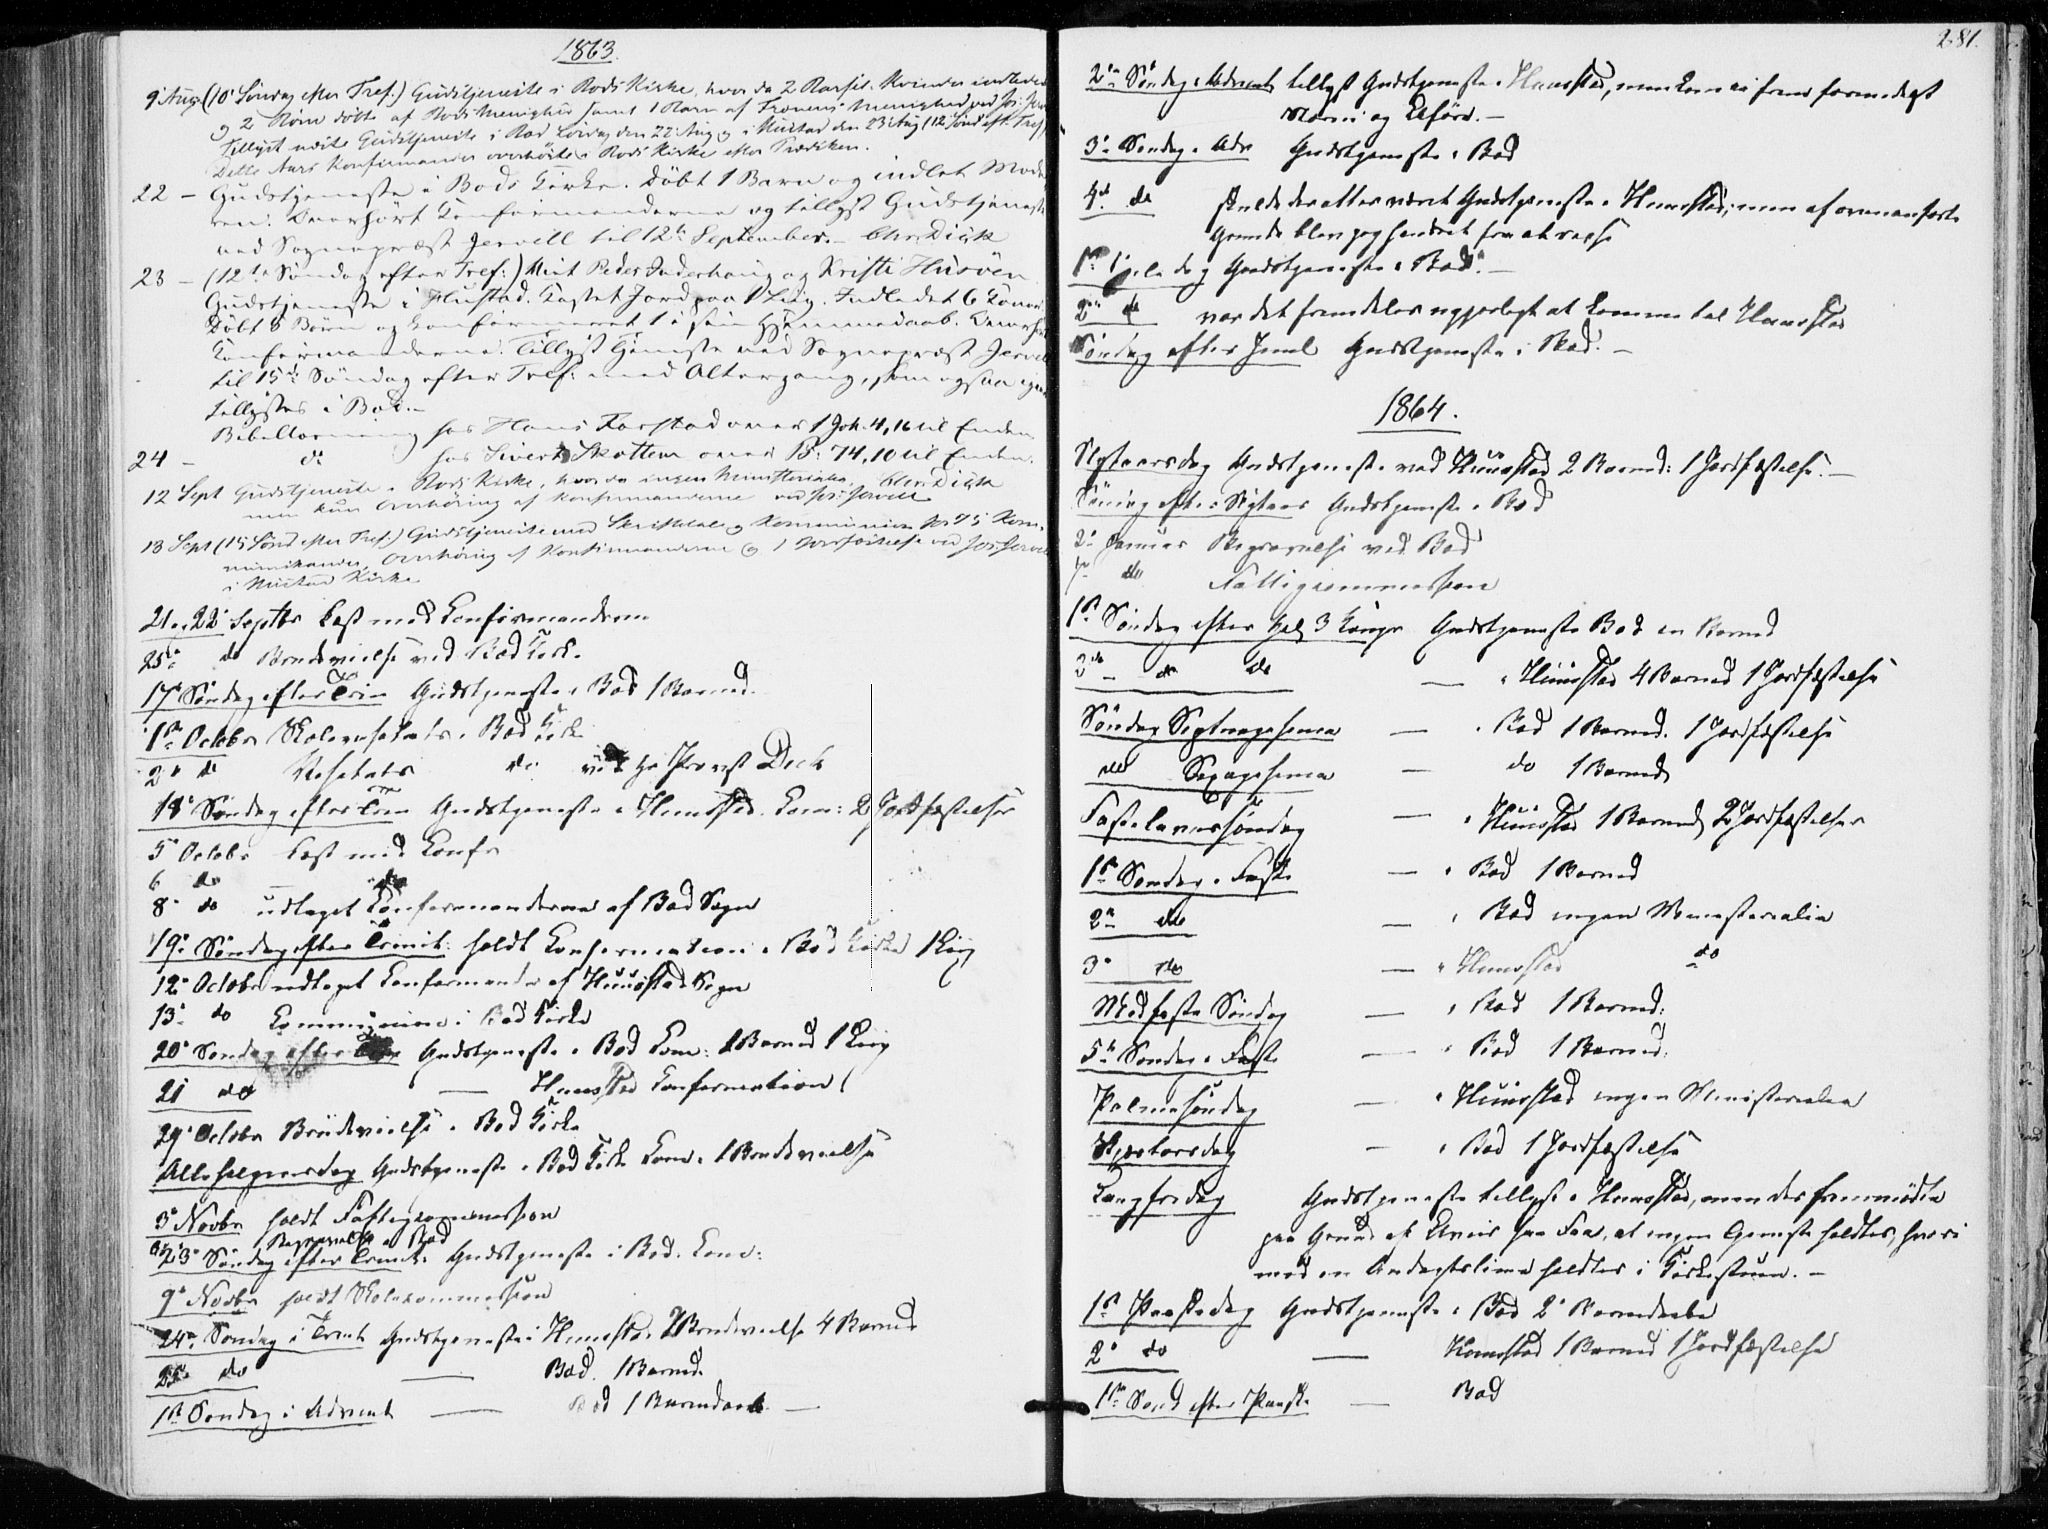 1863.
9 Aug (10 Søndag efter Tref.) Gudstjeneste i Bods Kirke, hvor da 2 Barsel Kvinder indlededes
og 2 Børn døbte af Bods Menighed samt 1 Barn af Menighed ved
Tillyst næste Gudstjeneste i Bod Lørdag den 22 Aug og i Hustad den 23 Aug (12 Sønd eft. Tref)
Dette Aars Konfirmander overhørte i Bods Kirke efter Prædiken.
22 – Gudstjeneste i Bods Kirke. Døbt 1 Barn og indlet Mode-
ren. Overhørt Konfirmanderne og tillyst Gudstjeneste
ved Sognepræst Jervell til 12te September. – Chr. Dick
23 – (12te Søndag efter Tref:) Kristi Husøen
Gudstjeneste i Hustad. Kastet Jord paa 1 Liig. Indledet 6 Koner
Døbt 8 Børn og konfirmeret 1 i sin Hjemmedaab. Overhørt
Konfirmanderne. Tillyst Tjeneste ved Sognepræst Jervell
til 15de Søndag efter Tref: med Altergang, som ogsaa
tillystes i Bod. –
Bibellæsning hos Hans Farstad over 1 Joh. 4, 16 til Enden.
24 – do hos Sivert Skottem over Ps: 74, 10 til Enden.
12 Sept Gudstjeneste i Bods Kirke, hvor da ingen Ministerialia, Chr. Dick
men kun Overhøring af Konfirmanderne ved Jervell
13 Sept (15 Sønd efter Tref.) Gudstjeneste med Skriftetale og Kommunion for 75 Kom-
munikanter, Overhøring af Konfirmanderne og 1 Jordfæstelse ved Jervell
i Hustad Kirke
21 og 22 Septbr Læst med Konfirmanderne
25de do Brudevielse ved Bod Kirke
17 Søndag efter Trin Gudstjeneste i Bod 1 Barned.
1ste Octobr i Bod Kirke
2 do do ved Hr Provst Dick
18 Søndag efter Trin Gudstjeneste i Huustad. Kom: 2 Jordfæstelser
5 Octobr Læst med Konfr
6 do – do
8 do udtaget Konfirmanderne af Bod Sogn
19 Søndag efter Trinit: holdt Confirmation i Bod Kirke 1 Liig
12 Octobr udtaget Konfirmander af Huustad Sogn
13 do Communion i Bod Kirke
20 Søndag efter Gudstjeneste i Bod Kom: 1 Barned 1 Liig
21 do – Huustad Confirmation
29 Octobr Brudevielse i Bod Kirke
Allehelgensdag Gudstjeneste i Bod Kirke Kom: 1 Brudevielse
3 Novbr holdt Fattigcommission
Begravelse Bod
23 Søndag efter Trinit: Gudstjeneste i Bod. Kom:
9 Novbr holdt Skolecommission
24 Søndag i Trinit Gudstjeneste i Huustad 2 Brudevielse 4 Barned
25 do – Bod. 1 Barned.
1ste Søndag i Advent – Bod 1 Barnedaab. –
281.
2den Søndag i Advent tillyst Gudstjeneste i Huustad, men kom ei frem formedelst
Storm og Uføre. –
3 Søndag i Adv Gudstjeneste i Bod
4 do skulde der atter været Gudstjeneste i Huustad, men af ovenanførte
Grunde blev jeg hindret fra at reise
1ste Juledag Gudstjeneste i Bod. –
2den do var det fremdeles ugjørligt at komme til Huustad
Søndag efter Juul Gudstjeneste i Bod. –
1864.
Nytaarsdag Gudstjeneste ved Huustad 2 Barned: 1 Jordfæstelse. –
Søndag efter Nytaar Gudstjeneste i Bod
2 Januar Begravelse ved Bod
do Fattigcommission
1ste Søndag efter Hel 3 Konger Gudstjeneste Bod en Barned
3de – do do – i Huustad 4 Barned 1 Jordfæstelse
Søndag Septuagesima – i Bod 1 Barned. 1 Jordfæstelse
do Sexagesima – do 1 Barned
Fastelavnssøndag – i Huustad 1 Barned 2 Jordfæstelser
1ste Søndag i Faste – i Bod 1 Barned
2den do – i Bod ingen Ministerialia
3 do – i Huustad do
Midfaste Søndag – i Bod 1 Barned:
5te Søndag i Faste – i Bod 1 Barned.
Palmesøndag – i Huustad ingen Ministerialia
Skjærtorsdag – i Bod 1 Jordfæstelse
Langfredag Gudstjeneste tillyst i Huustad, men der fremmødte
paa Grund af Uveir saa Faa, at ingen Tjeneste holdtes, hvori-
mod en Andagtstime holdtes i Kirkestuen. –
1ste Paaskedag Gudstjeneste i Bod 2 Barnedaabe
2 do – Huustad 1 Barned 1 Jordfæstelse
1ste Sønd efter Paaske – Bod